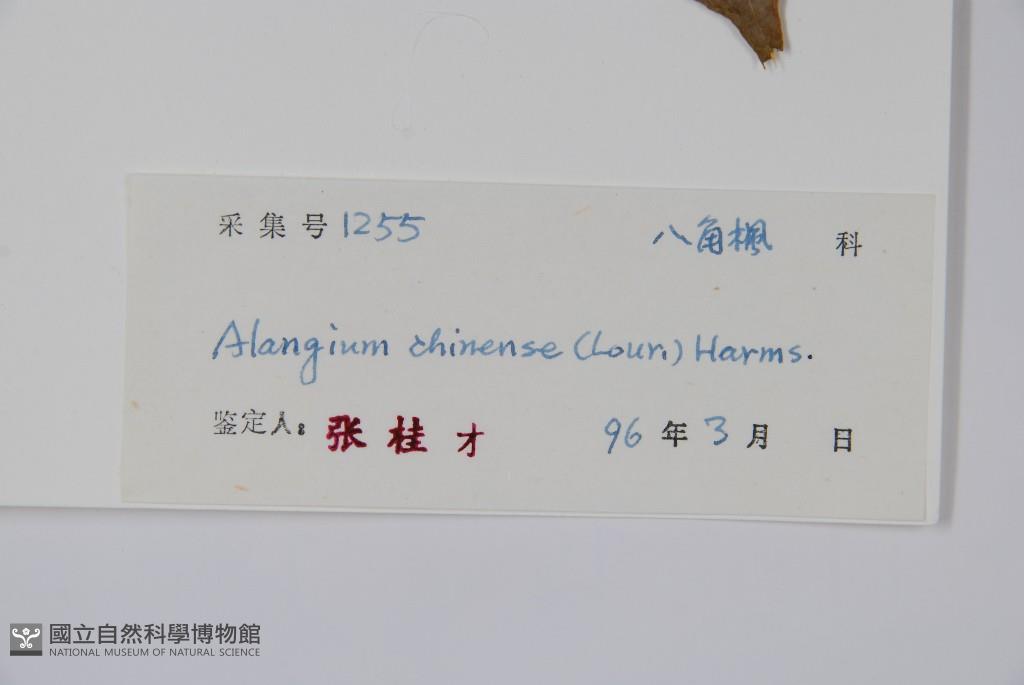 采集号 1255 八角楓 科
Alangium chinense (Lour.) Harms.
鉴定人: 张桂才 96 年 3 月 日
國立自然科學博物館
NATIONAL MUSEUM OF NATURAL SCIENCE